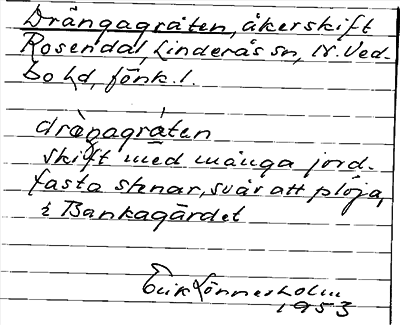 Drängagråten, åkerskift
Rosendal, Linderås sn, N. Ved-
bo hd, Jönk. l.
drängagråten
skift med många jord-
fasta stenar, svår att plöja,
i Bankagärdet
Erik Lönnerholm
1953